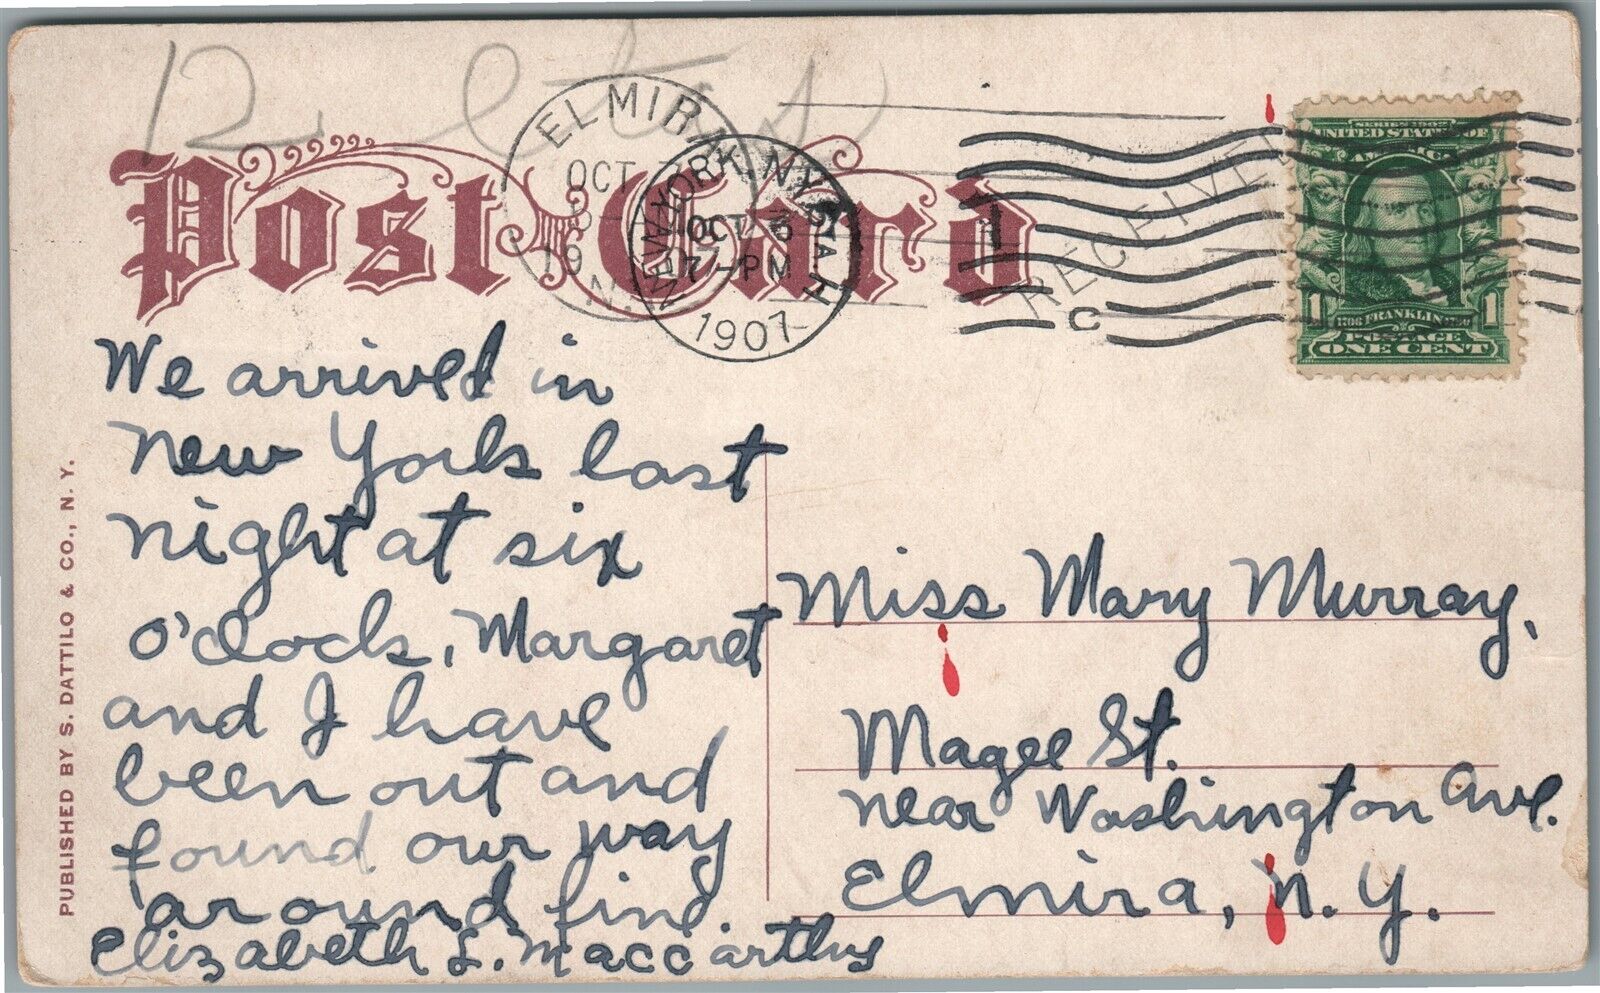 Post Card
ELMIRA
OCT
19
N.
NEW YORK, N.Y. STA H
OCT 6
7-PM
1907
C
RECEIVED
SERIES 1902
UNITED STATES OF
AMERICA
1 1
1706 FRANKLIN 1790
POSTAGE
ONE CENT
We arrived in
New York last
night at six
o'clock, Margaret
and I have
been out and
found our way
around fine.
Elizabeth L. MacCarthy
Miss Mary Murray,
Magee St.
near Washington Ave.
Elmira, N.Y.
PUBLISHED BY S. DATTILO & CO., N. Y.